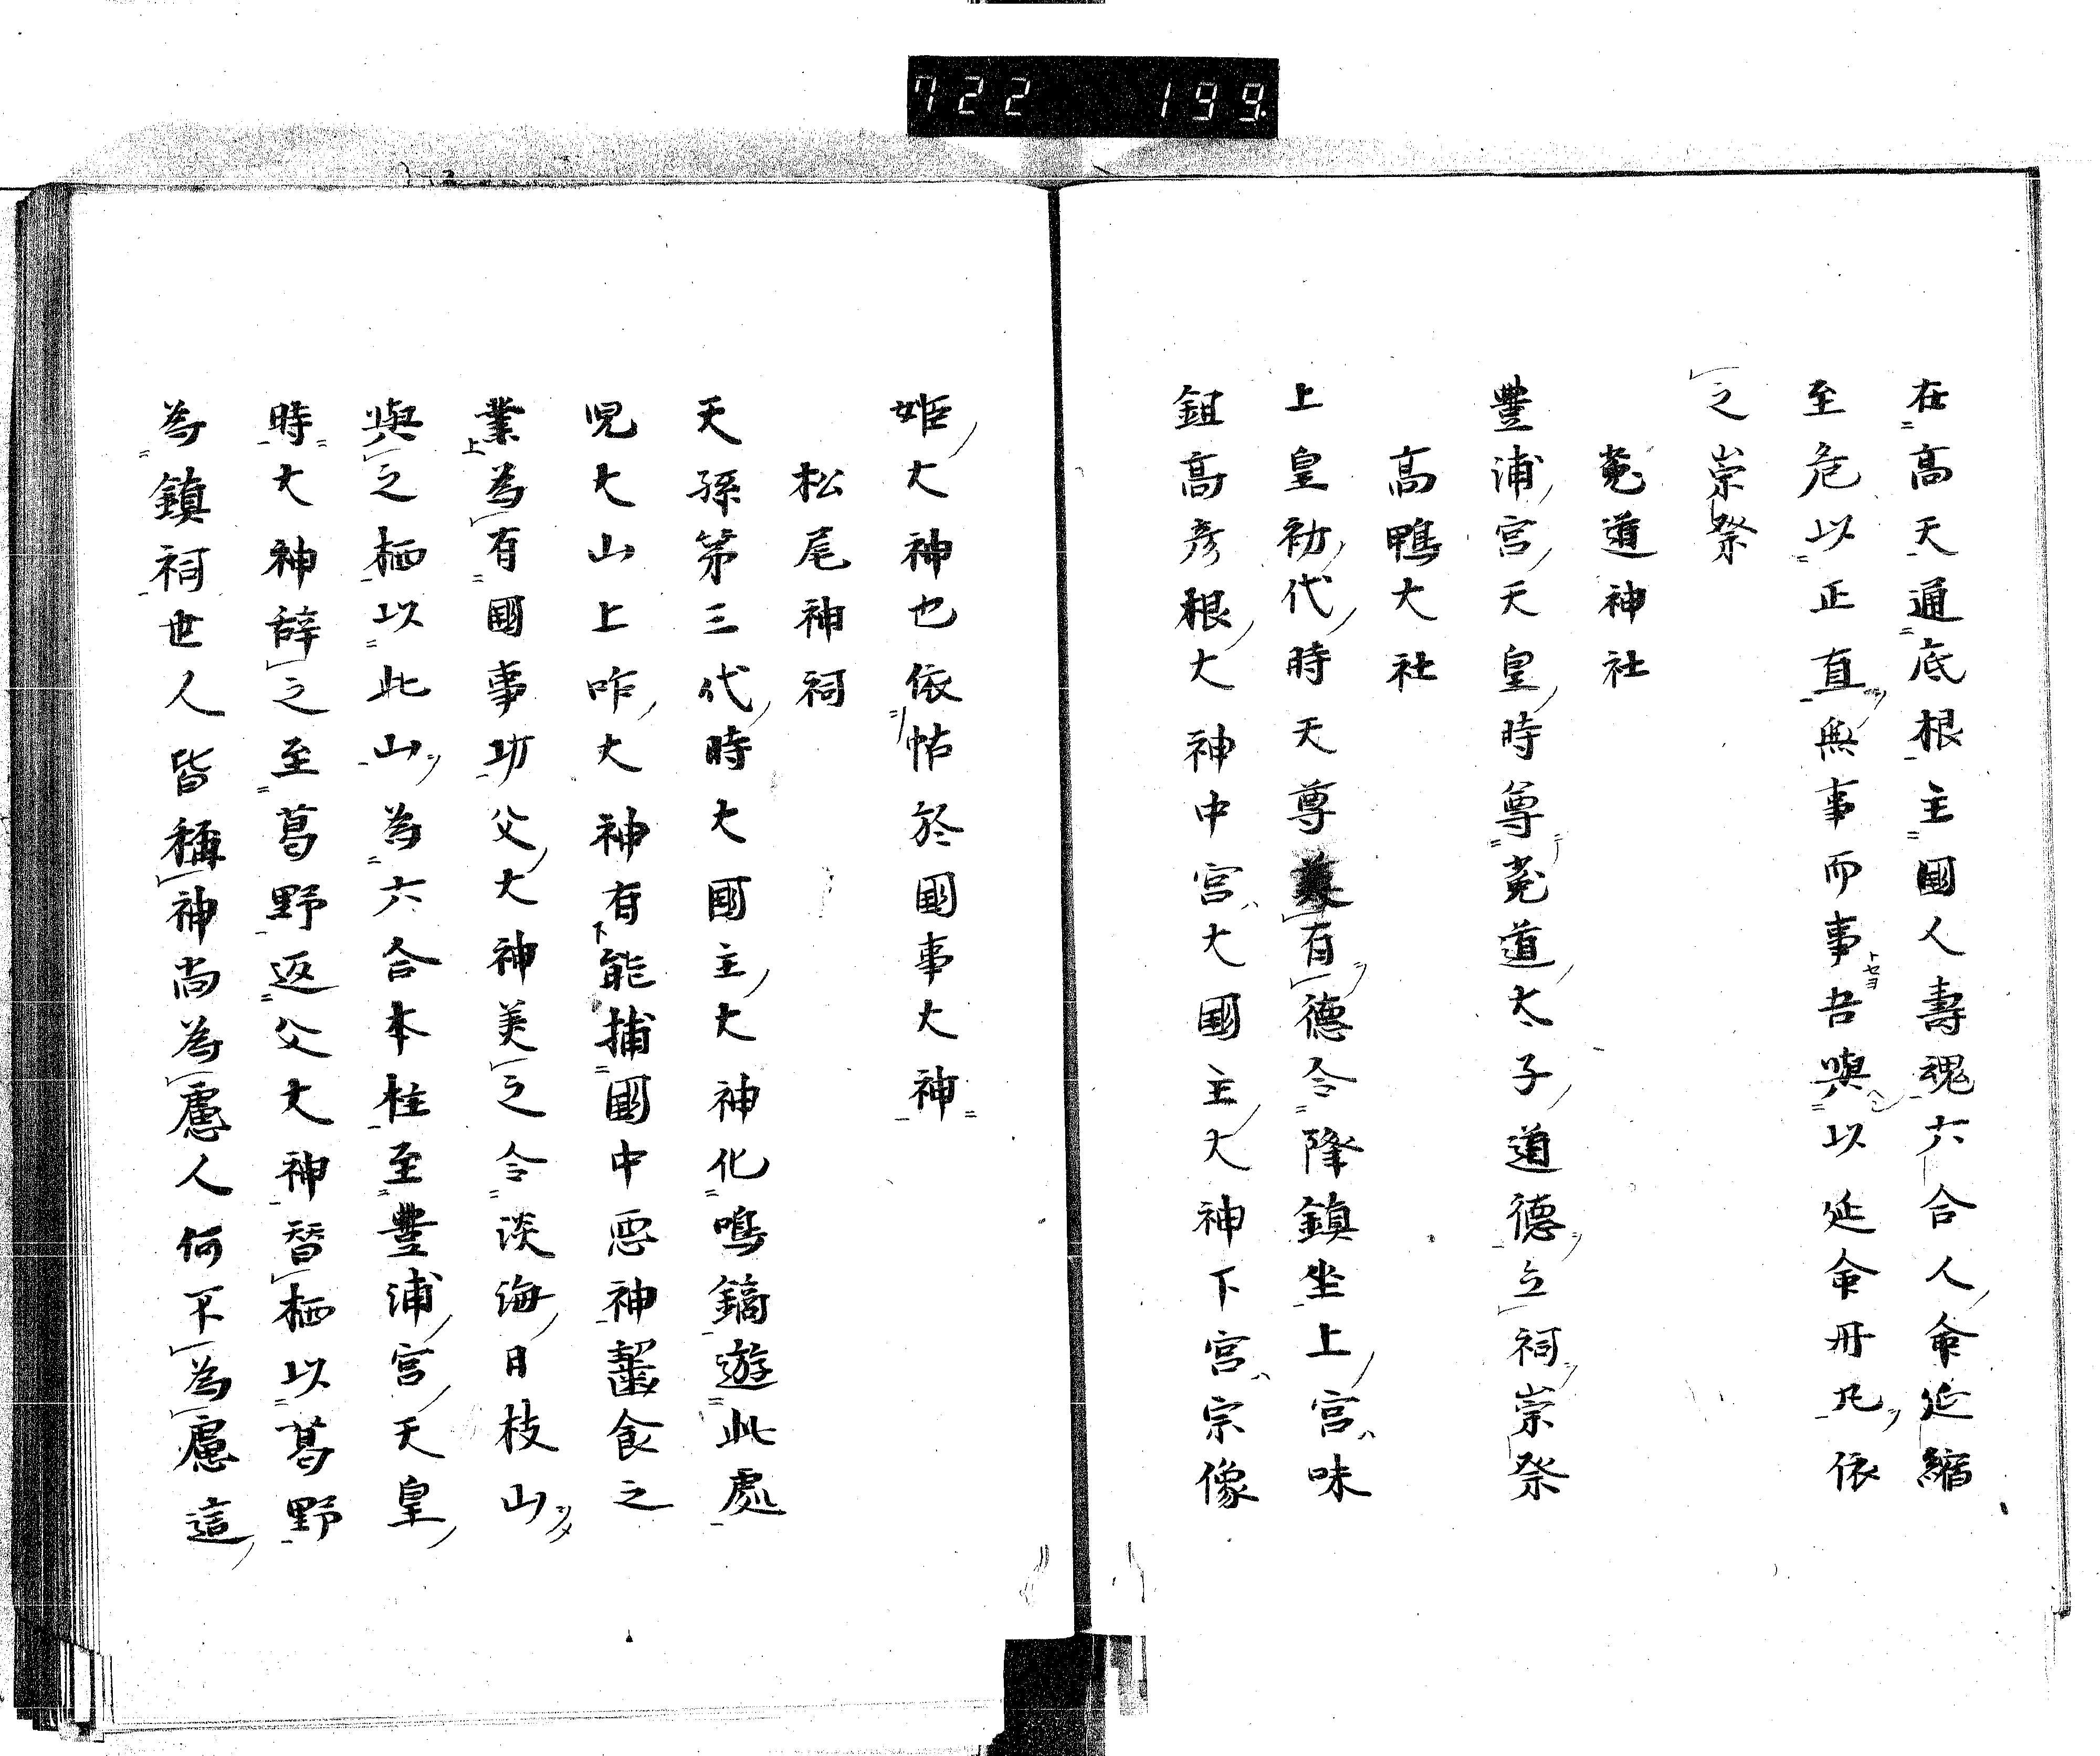 722 199
在高天通底根主國人壽魂六合人命延縮
至危以正直無事而事吾與以延命丹凡依
之崇祭
菟道神社
豐浦宮天皇時尊菟道太子道德立祠崇祭
高鴨大社
上皇初代時天尊義有德令降鎮坐上宮味
鉏高彥根大神中宮大國主大神下宮宗像
姫大神也依怙於國事大神
松尾神祠
天孫第三代時大國主大神化鳴鏑遊此處
児大山上咋大神有能捕國中惡神齧食之
業為有國事功父大神美之令淡海日枝山
與之栖以此山為六合本柱至豐浦宮天皇
時大神辞之至葛野返父大神替栖以葛野
為鎮祠世人皆稱神尚為慮人何不為慮這